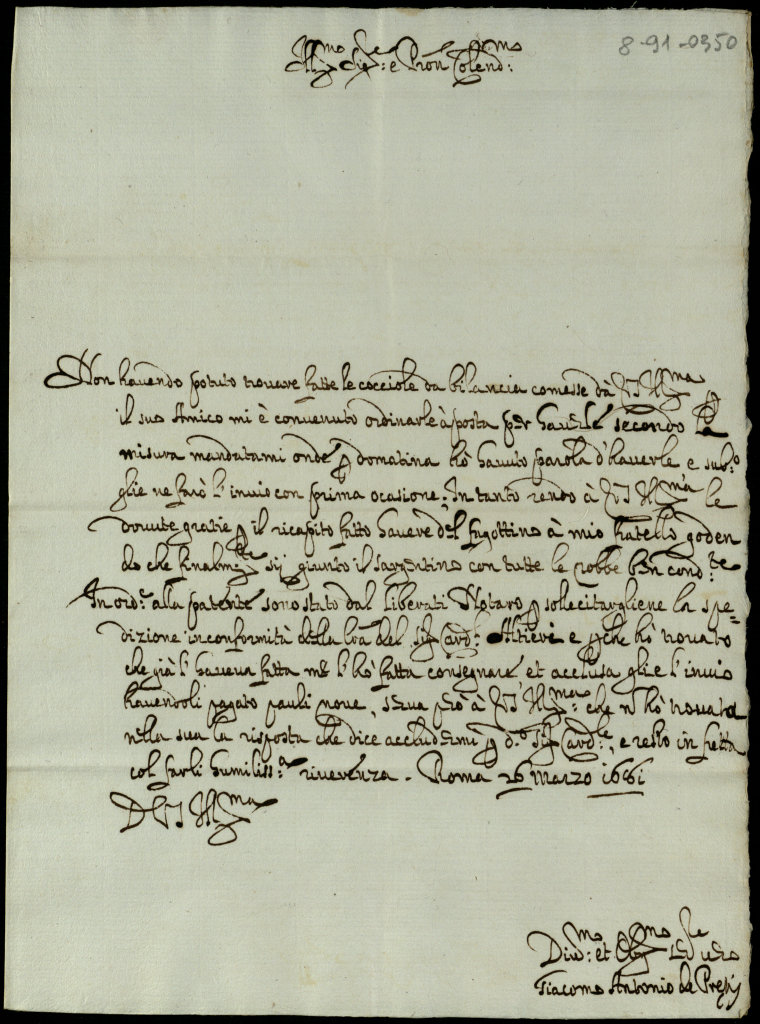 8-91-0350
Ill.mo Sig.re e Pron Colend.mo
Non havendo potuto trovare fatte le cocciole da bilancia comesse da V.S. Ill.ma p
il suo Amico mi è convenuto ordinarle à posta per haverle secondo la
misura mandatami onde p domatina hò havuto parola d'haverle e sub.o
glie ne farò l'invio con prima ocasione. In tanto rendo à V.S. Ill.ma le
dovute gratie p il ricapito fatto havere del fagottino à mio fratello goden
do che finalm.te sij giunto il sargentino con tutte le robbe ben cond.te
In ord.e alla patente sono stato dal Liberati Notaro p sollecitargliene la spe=
dizione inconformità della lra del Sig.r Card.l Altieri e pche hò trovato
che già l'haveva fatta me l'hò fatta consegnare et acclusa glie l'invio
havendoli pagato pauli nove, serva però à V.S. Ill.ma che n hò trovata
nella sua la risposta che dice accludermi p d.o Sig.r Card.le, e resto in fretta
col farli humiliss.a riverenza. Roma 26 Marzo 1681
D V.S. Ill.ma
Div.mo et Obl.mo Ser.re vero
Giacomo Antonio de Pretis